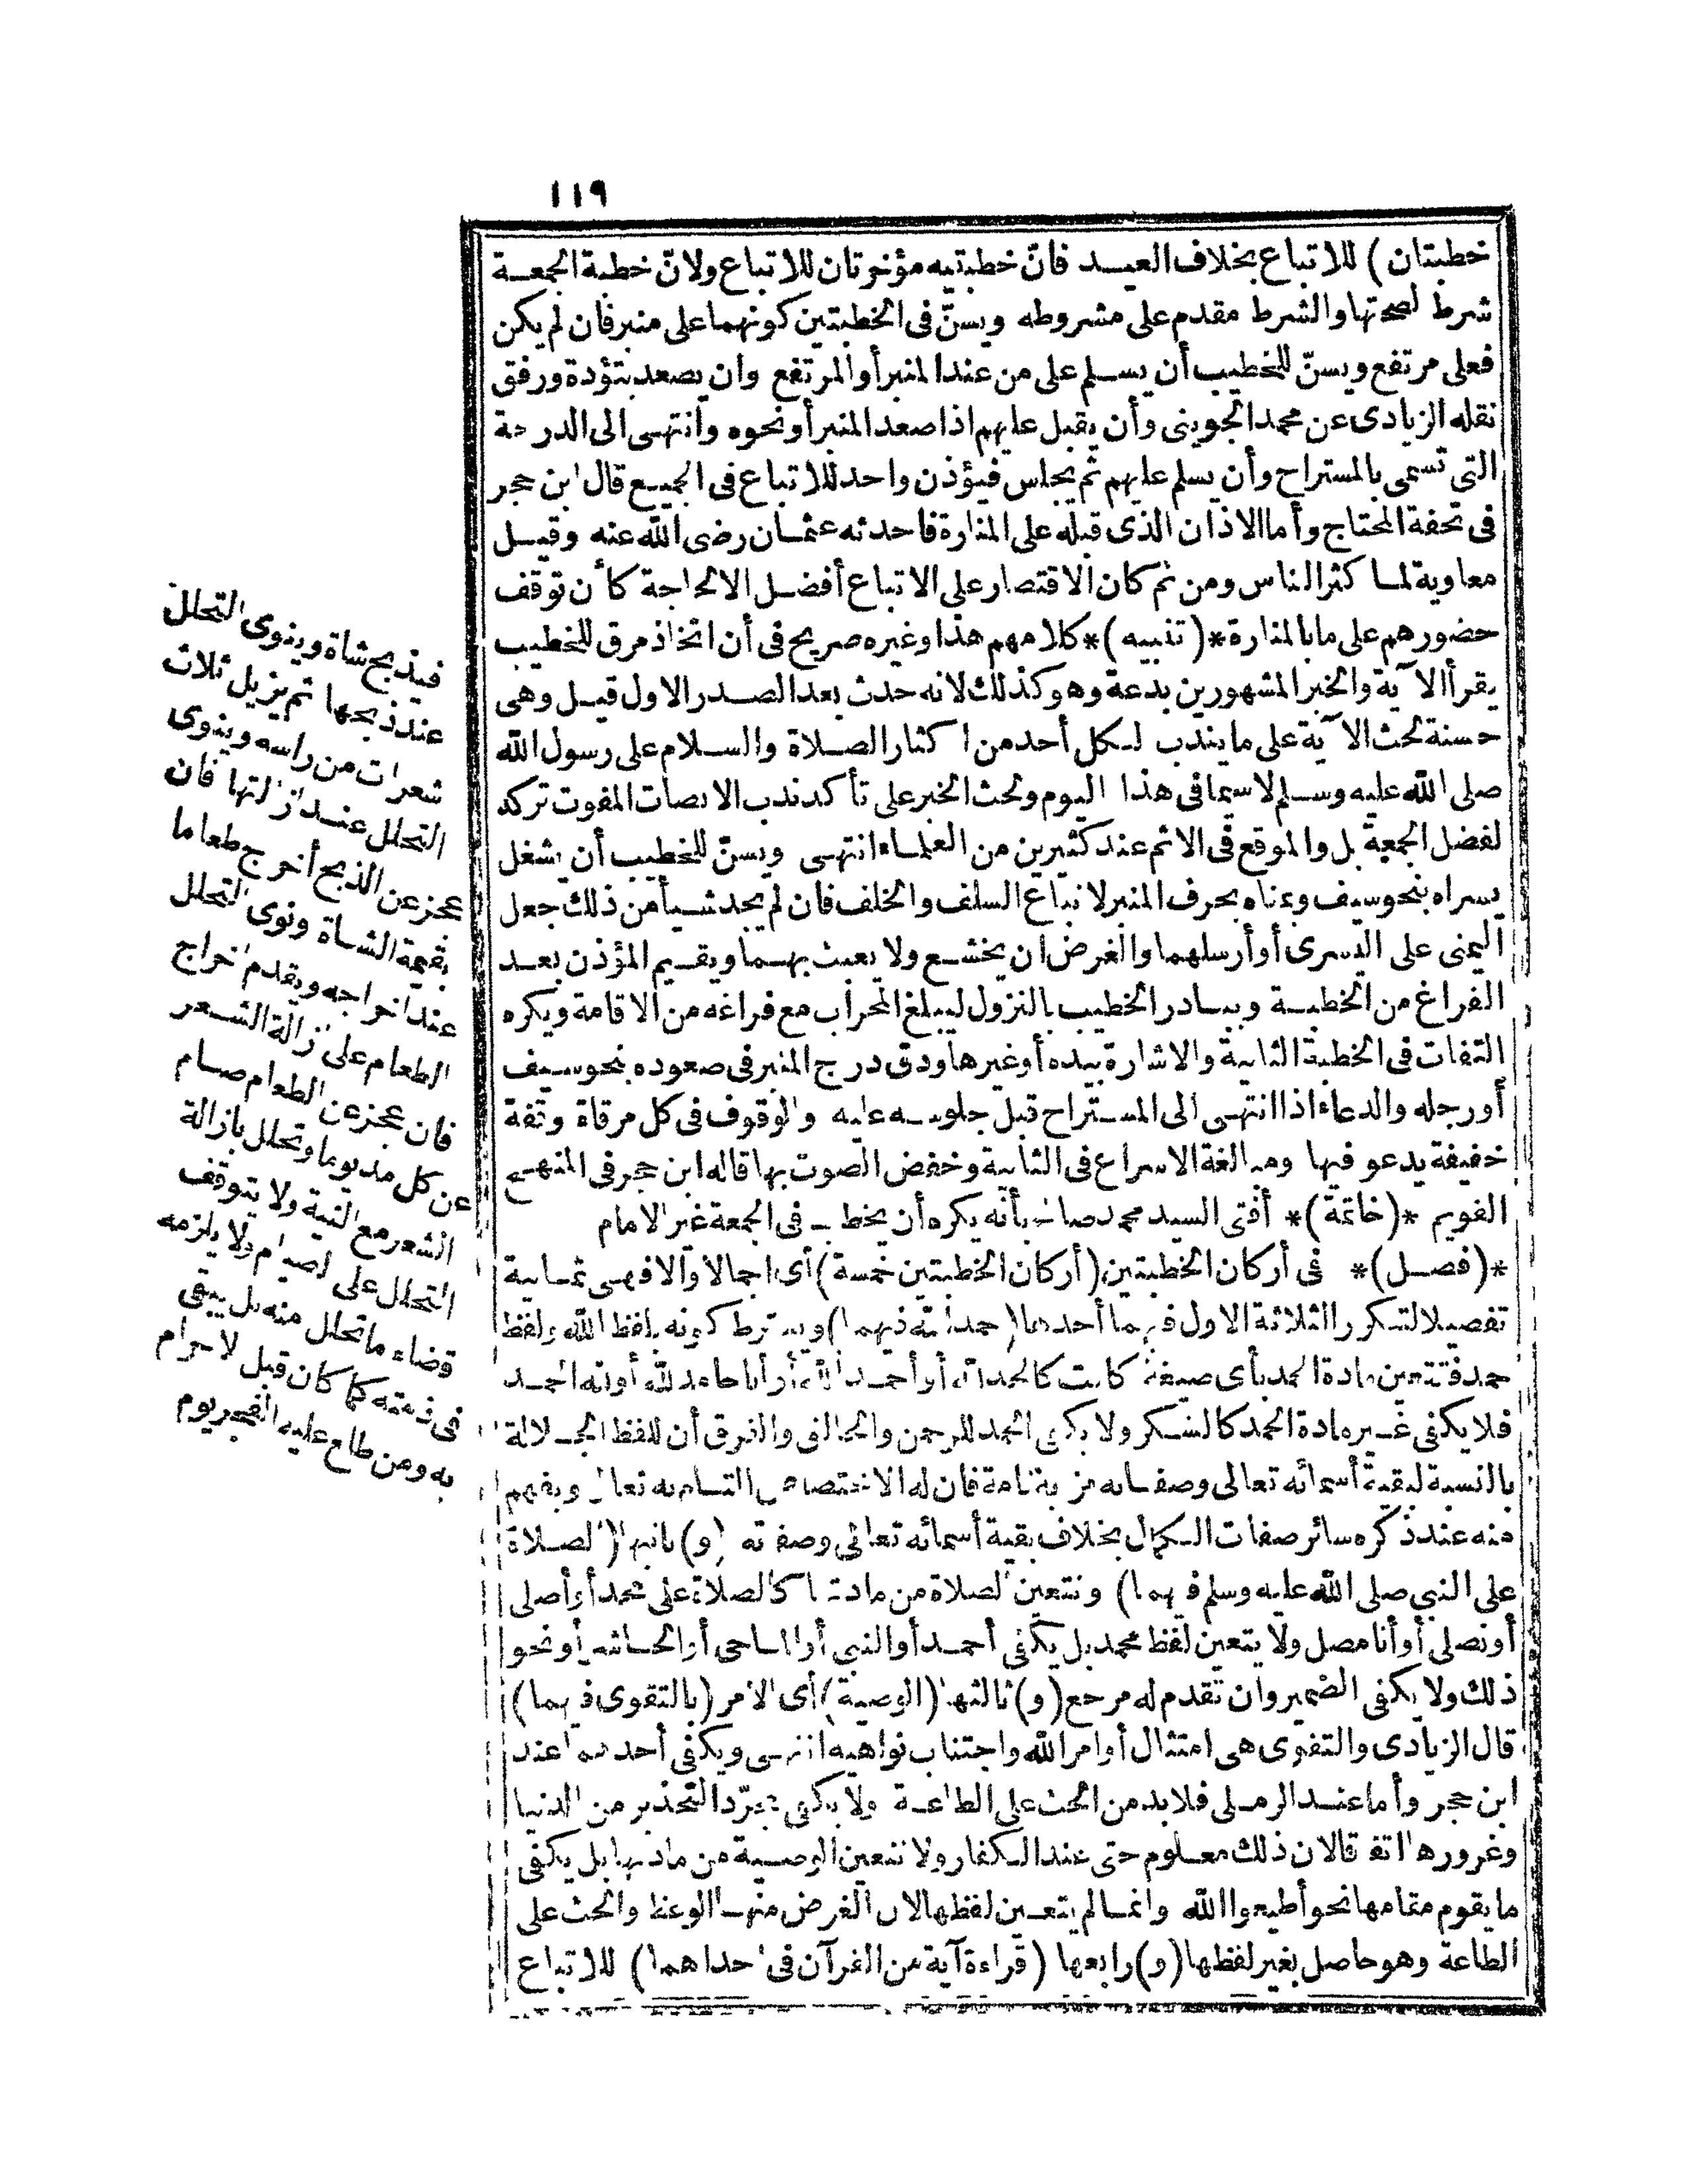 ١١٩
خطبتان) للاتباع بخلاف العيد فانّ خطبتيه مؤخرتان للاتباع ولانّ خطبة الجمعة
شرط لصحتها والشرط مقدم على مشروطه ويسنّ فى الخطبتين كونهما على منبر فان لم يكن
فعلى مرتفع ويسنّ للخطيب أن يسلم على من عند المنبر أو المرتفع وان يصعد بتؤدة ورفق
نقله الزيادى عن محمد الجوينى وأن يقبل عليهم اذا صعد المنبر أو نحوه وانتهى الى الدرجة
التى تسمى بالمستراح وأن يسلم عليهم ثم يجلس فيؤذن واحد للاتباع فى الجميع قال ابن حجر
فى تحفة المحتاج وأما الاذان الذى قبله على المنارة فاحدثه عثمان رضى الله عنه وقيل
معاوية لما كثر الناس ومن ثم كان الاقتصار على الاتباع أفضل الا لحاجة كأن توقف
حضورهم على ما بالمنارة *(تنبيه)* كلامهم هذا وغيره صريح فى أن اتخاذ مرق للخطيب
يقرأ الآية والخبر المشهورين بدعة وهو كذلك لانه حدث بعد الصدر الاول قيل وهى
حسنة لحث الآية على ما يندب لكل أحد من اكثار الصلاة والسلام على رسول الله
صلى الله عليه وسلم لا سيما فى هذا اليوم ولحث الخبر على تأكد ندب الانصات المفوت تركه
لفضل الجمعة بل والموقع فى الاثم عند كثيرين من العلماء انتهى ويسنّ للخطيب أن يشغل
يسراه بنحو سيف ويمناه بحرف المنبر لاتباع السلف والخلف فان لم يجد شيأ من ذلك جعل
اليمنى على اليسرى أو أرسلهما والغرض ان يخشع ولا يعبث بهما ويقيم المؤذن بعد
الفراغ من الخطبة ويبادر الخطيب بالنزول ليبلغ المحراب مع فراغه من الاقامة ويكره
التفات فى الخطبة الثانية والاشارة بيده أو غيرها ودق درج المنبر فى صعوده بنحو سيف
أو رجله والدعاء اذا انتهى الى المستراح قبل جلوسه عليه والوقوف فى كل مرقاة وقفة
خفيفة يدعو فيها ومبالغة الاسراع فى الثانية وخفض الصوت بها قاله ابن حجر فى المنهج
القويم *(خاتمة)* أفتى السيد محمد صالح بأنه يكره أن يخطب فى الجمعة غير الامام
*(فصل)* فى أركان الخطبتين (أركان الخطبتين خمسة) أى اجمالا والا فهى ثمانية
تفصيلا لتكرر الثلاثة الاول فيهما أحدها (حمد الله فيهما) ويشترط كونه بلفظ الله ولفظ
حمد فتتعين مادة الحمد بأى صيغة كانت كالحمد لله أو أحمد الله أو أنا حامد لله أو لله الحمد
فلا يكفى غير مادة الحمد كالشكر ولا يكفى الحمد للرحمن والخالق والفرق أن للفظ الجلالة
بالنسبة لبقية أسمائه تعالى وصفاته مزية تامة فان له الاختصاص التام به تعالى ويفهم
منه عند ذكره سائر صفات الكمال بخلاف بقية أسمائه تعالى وصفاته (و) ثانيها (الصلاة
على النبى صلى الله عليه وسلم فيهما) وتتعين الصلاة من مادتها كالصلاة على محمد أو أصلى
أو نصلى أو أنا مصل ولا يتعين لفظ محمد بل يكفى أحمد أو النبى أو الماحى أو الحاشر أو نحو
ذلك ولا يكفى الضمير وان تقدم له مرجع (و) ثالثها (الوصية) أى الامر (بالتقوى فيهما)
قال الزيادى والتقوى هى امتثال أوامر الله واجتناب نواهيه انتهى ويكفى أحدهما عند
ابن حجر وأما عند الرملى فلا بد من الحث على الطاعة ولا يكفى مجرّد التحذير من الدنيا
وغرورها اتفاقا لان ذلك معلوم حتى عند الكفار ولا تتعين الوصية من مادتها بل يكفى
ما يقوم مقامها نحو أطيعوا الله وانما لم يتعين لفظها لان الغرض منها الوعظ والحث على
الطاعة وهو حاصل بغير لفظها (و) رابعها (قراءة آية من القرآن فى احداهما) للاتباع
فيذبح شاة وينوى التحلل
عند ذبحها ثم يزيل ثلاث
شعرات من رأسه وينوى
التحلل عند ازالتها فان
عجز عن الذبح أخرج طعاما
بقيمة الشاة ونوى التحلل
عند اخراجه ويقدم اخراج
الطعام على ازالة الشعر
فان عجز عن الطعام صام
عن كل مد يوما وتحلل بازالة
الشعر مع النية ولا يتوقف
التحلل على الصيام ولا يلزمه
قضاء ما تحلل منه بل يبقى
فى ذمته كما كان قبل الاحرام
به ومن طلع عليه الفجر يوم